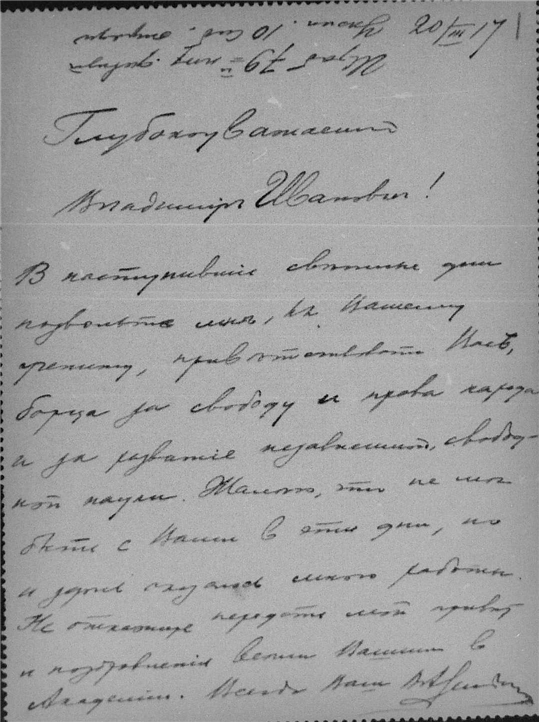 20/III 17
Глубокоуважаемый
Владимиръ Ивановичъ!
В наступившіе светлые дни
позвольте мнѣ, Вашему
ученику, приветствовать Васъ,
борца за свободу и права народа
и за развитіе независимой, свобод-
ной науки. Жалею, что не мог
быть с Вами в эти дни, но
и здесь оказалось много работы.
Не откажите передать мой привет
и поздравления всем Вашим в
Академии. Всегда Ваш